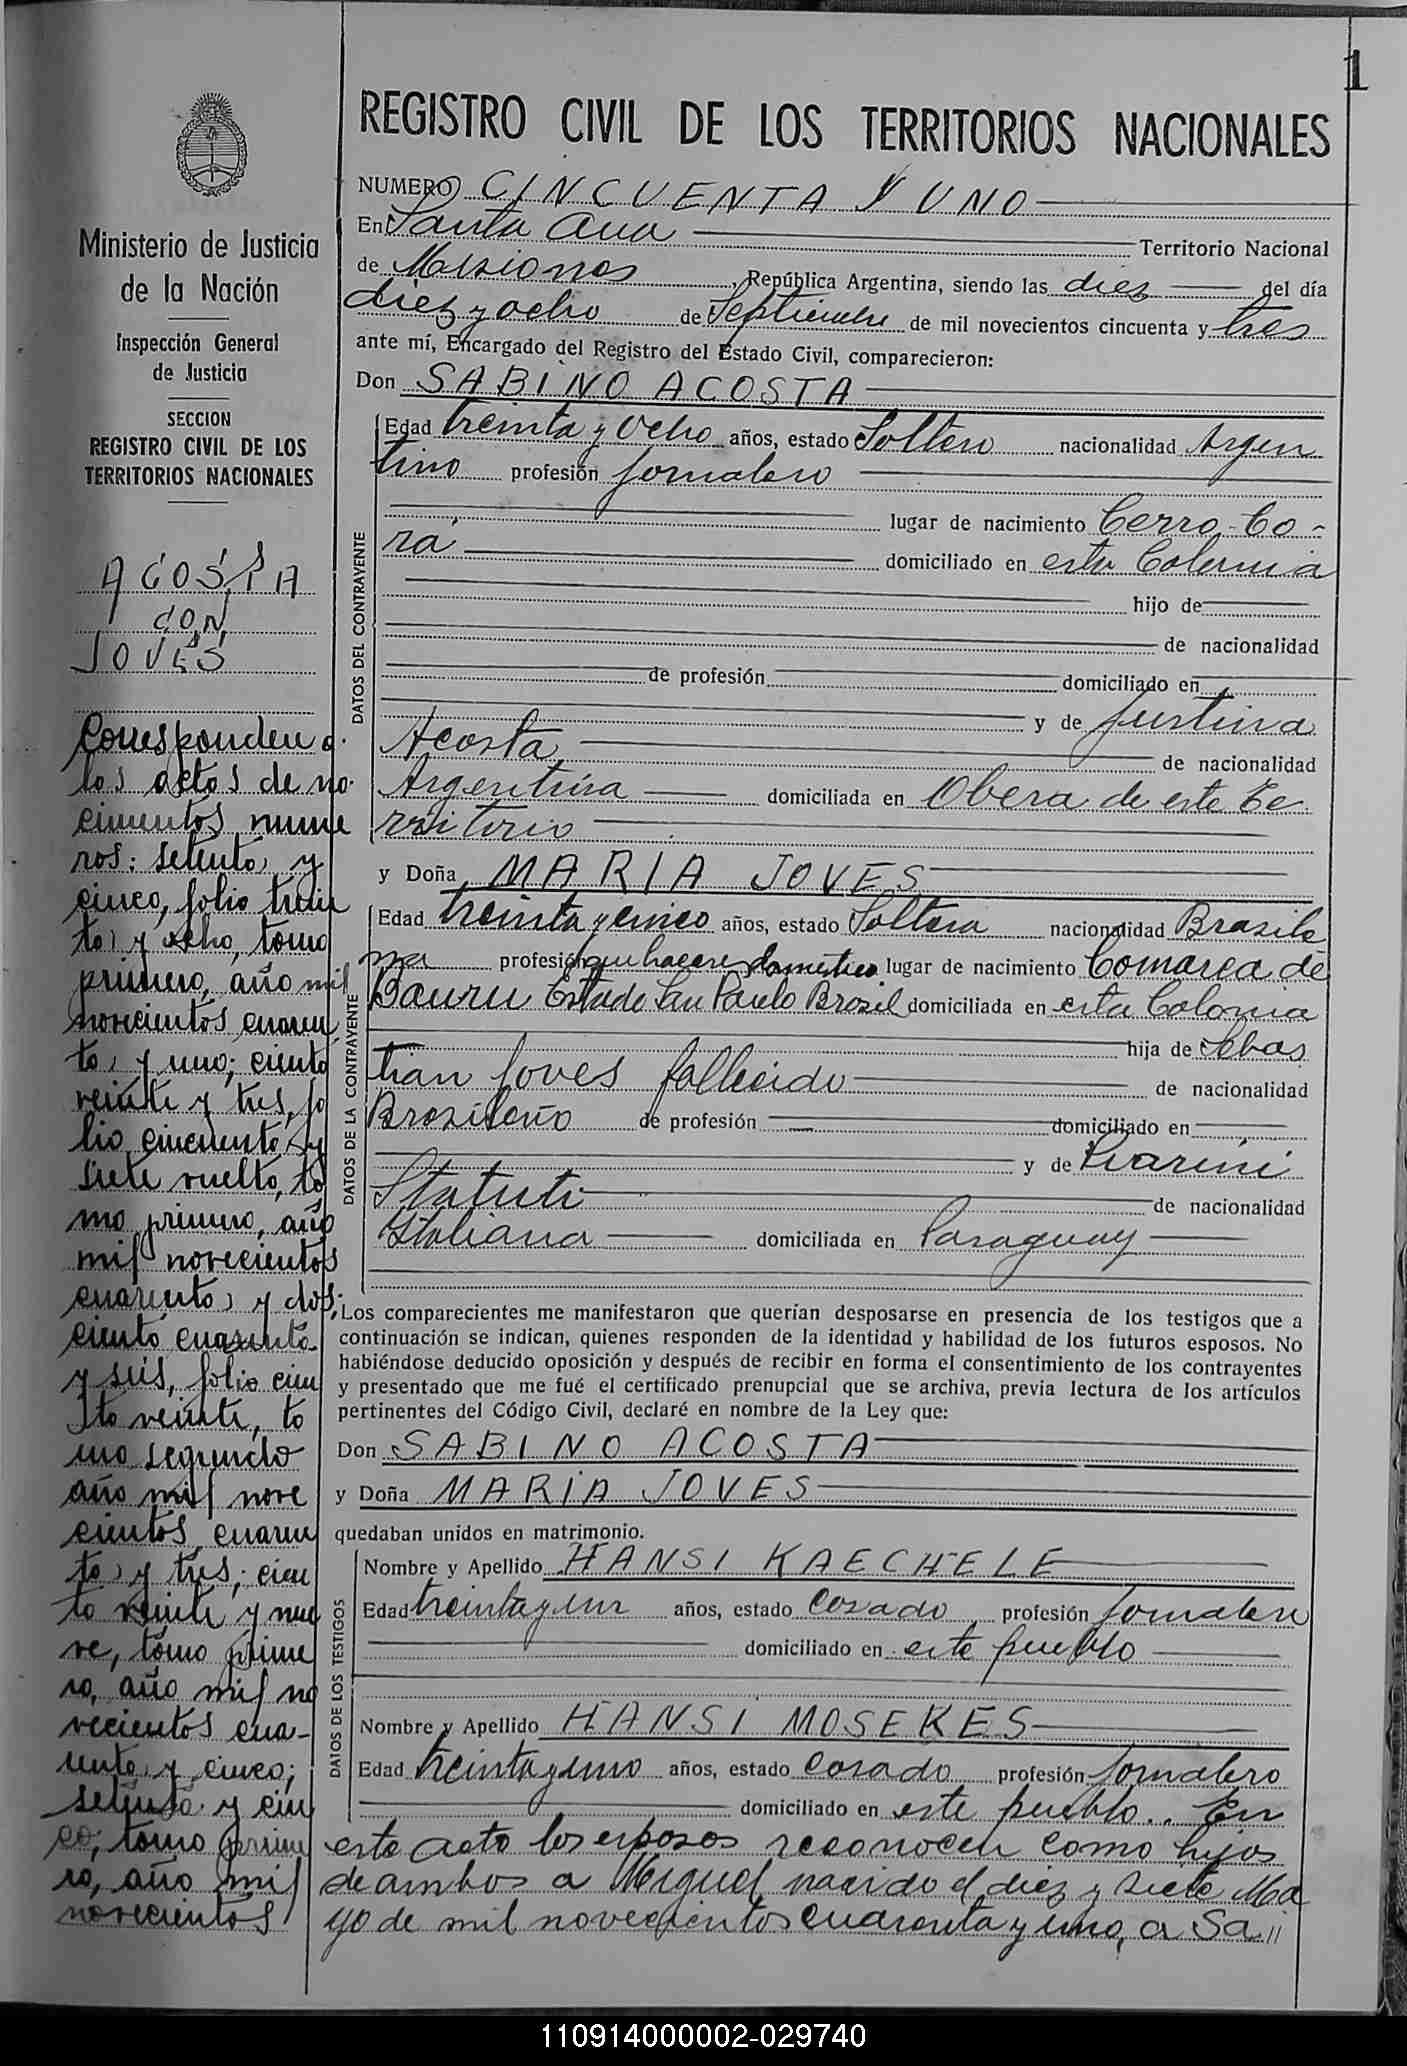 1
REGISTRO CIVIL DE LOS TERRITORIOS NACIONALES
NUMERO CINCUENTA Y UNO
En Santa Ana Territorio Nacional
de Misiones República Argentina, siendo las diez del día
diez y ocho de Septiembre de mil novecientos cincuenta y tres
ante mí, Encargado del Registro del Estado Civil, comparecieron:
Don SABINO ACOSTA
Edad treinta y ocho años, estado Soltero nacionalidad Argen
tino profesión Jornalero
lugar de nacimiento Cerro-Co-
rá domiciliado en esta Colonia
hijo de
de nacionalidad
de profesión domiciliado en
y de Justina
Acosta de nacionalidad
Argentina domiciliada en Obera de este te
rritorio
y Doña MARIA JOVES
Edad treinta y cinco años, estado Soltera nacionalidad Brasile
ña profesión quehaceres domésticos lugar de nacimiento Comarca de
Bauru Estado San Paulo Brasil domiciliada en esta Colonia
hija de Sebas
tian Joves fallecido de nacionalidad
Brasileño de profesión domiciliado en
y de
Statuti de nacionalidad
Italiana domiciliada en Paraguay
Los comparecientes me manifestaron que querían desposarse en presencia de los testigos que a
continuación se indican, quienes responden de la identidad y habilidad de los futuros esposos. No
habiéndose deducido oposición y después de recibir en forma el consentimiento de los contrayentes
y presentado que me fué el certificado prenupcial que se archiva, previa lectura de los artículos
pertinentes del Código Civil, declaré en nombre de la Ley que:
Don SABINO ACOSTA
y Doña MARIA JOVES
quedaban unidos en matrimonio.
Nombre y Apellido HANSI KAECHELE
Edad treinta y un años, estado Casado profesión Jornalero
domiciliado en este pueblo
Nombre y Apellido HANSI MOSEKES
Edad treinta y uno años, estado Casado profesión Jornalero
domiciliado en este pueblo.. En
este acto los esposos reconocen como hijos
de ambos a Miguel, nacido el diez y siete Ma
yo de mil novecientos cuarenta y uno, a Sa //
DATOS DEL CONTRAYENTE
DATOS DE LA CONTRAYENTE
DATOS DE LOS TESTIGOS
Ministerio de Justicia
de la Nación
Inspección General
de Justicia
SECCION
REGISTRO CIVIL DE LOS
TERRITORIOS NACIONALES
ACOSTA
CON
JOVES
Corresponden a
las actas de na
cimientos nume
ros: setenta y
cinco, folio trein
ta y ocho, tomo
primero, año mil
novecientos cuaren
ta y uno; ciento
veinte y tres, fo
lio cincuenta y
siete vuelto, to
mo primero, año
mil novecientos
cuarenta y dos;
ciento cuarenta
y seis, folio cien
to veinte, to
mo segundo
año mil nove
cientos cuaren
ta y tres; cien
to veinte y nue
ve, tomo prime
ro, año mil no
vecientos cua-
renta y cinco;
setenta y cin
co, tomo prime
ro, año mil
novecientos
110914000002-029740